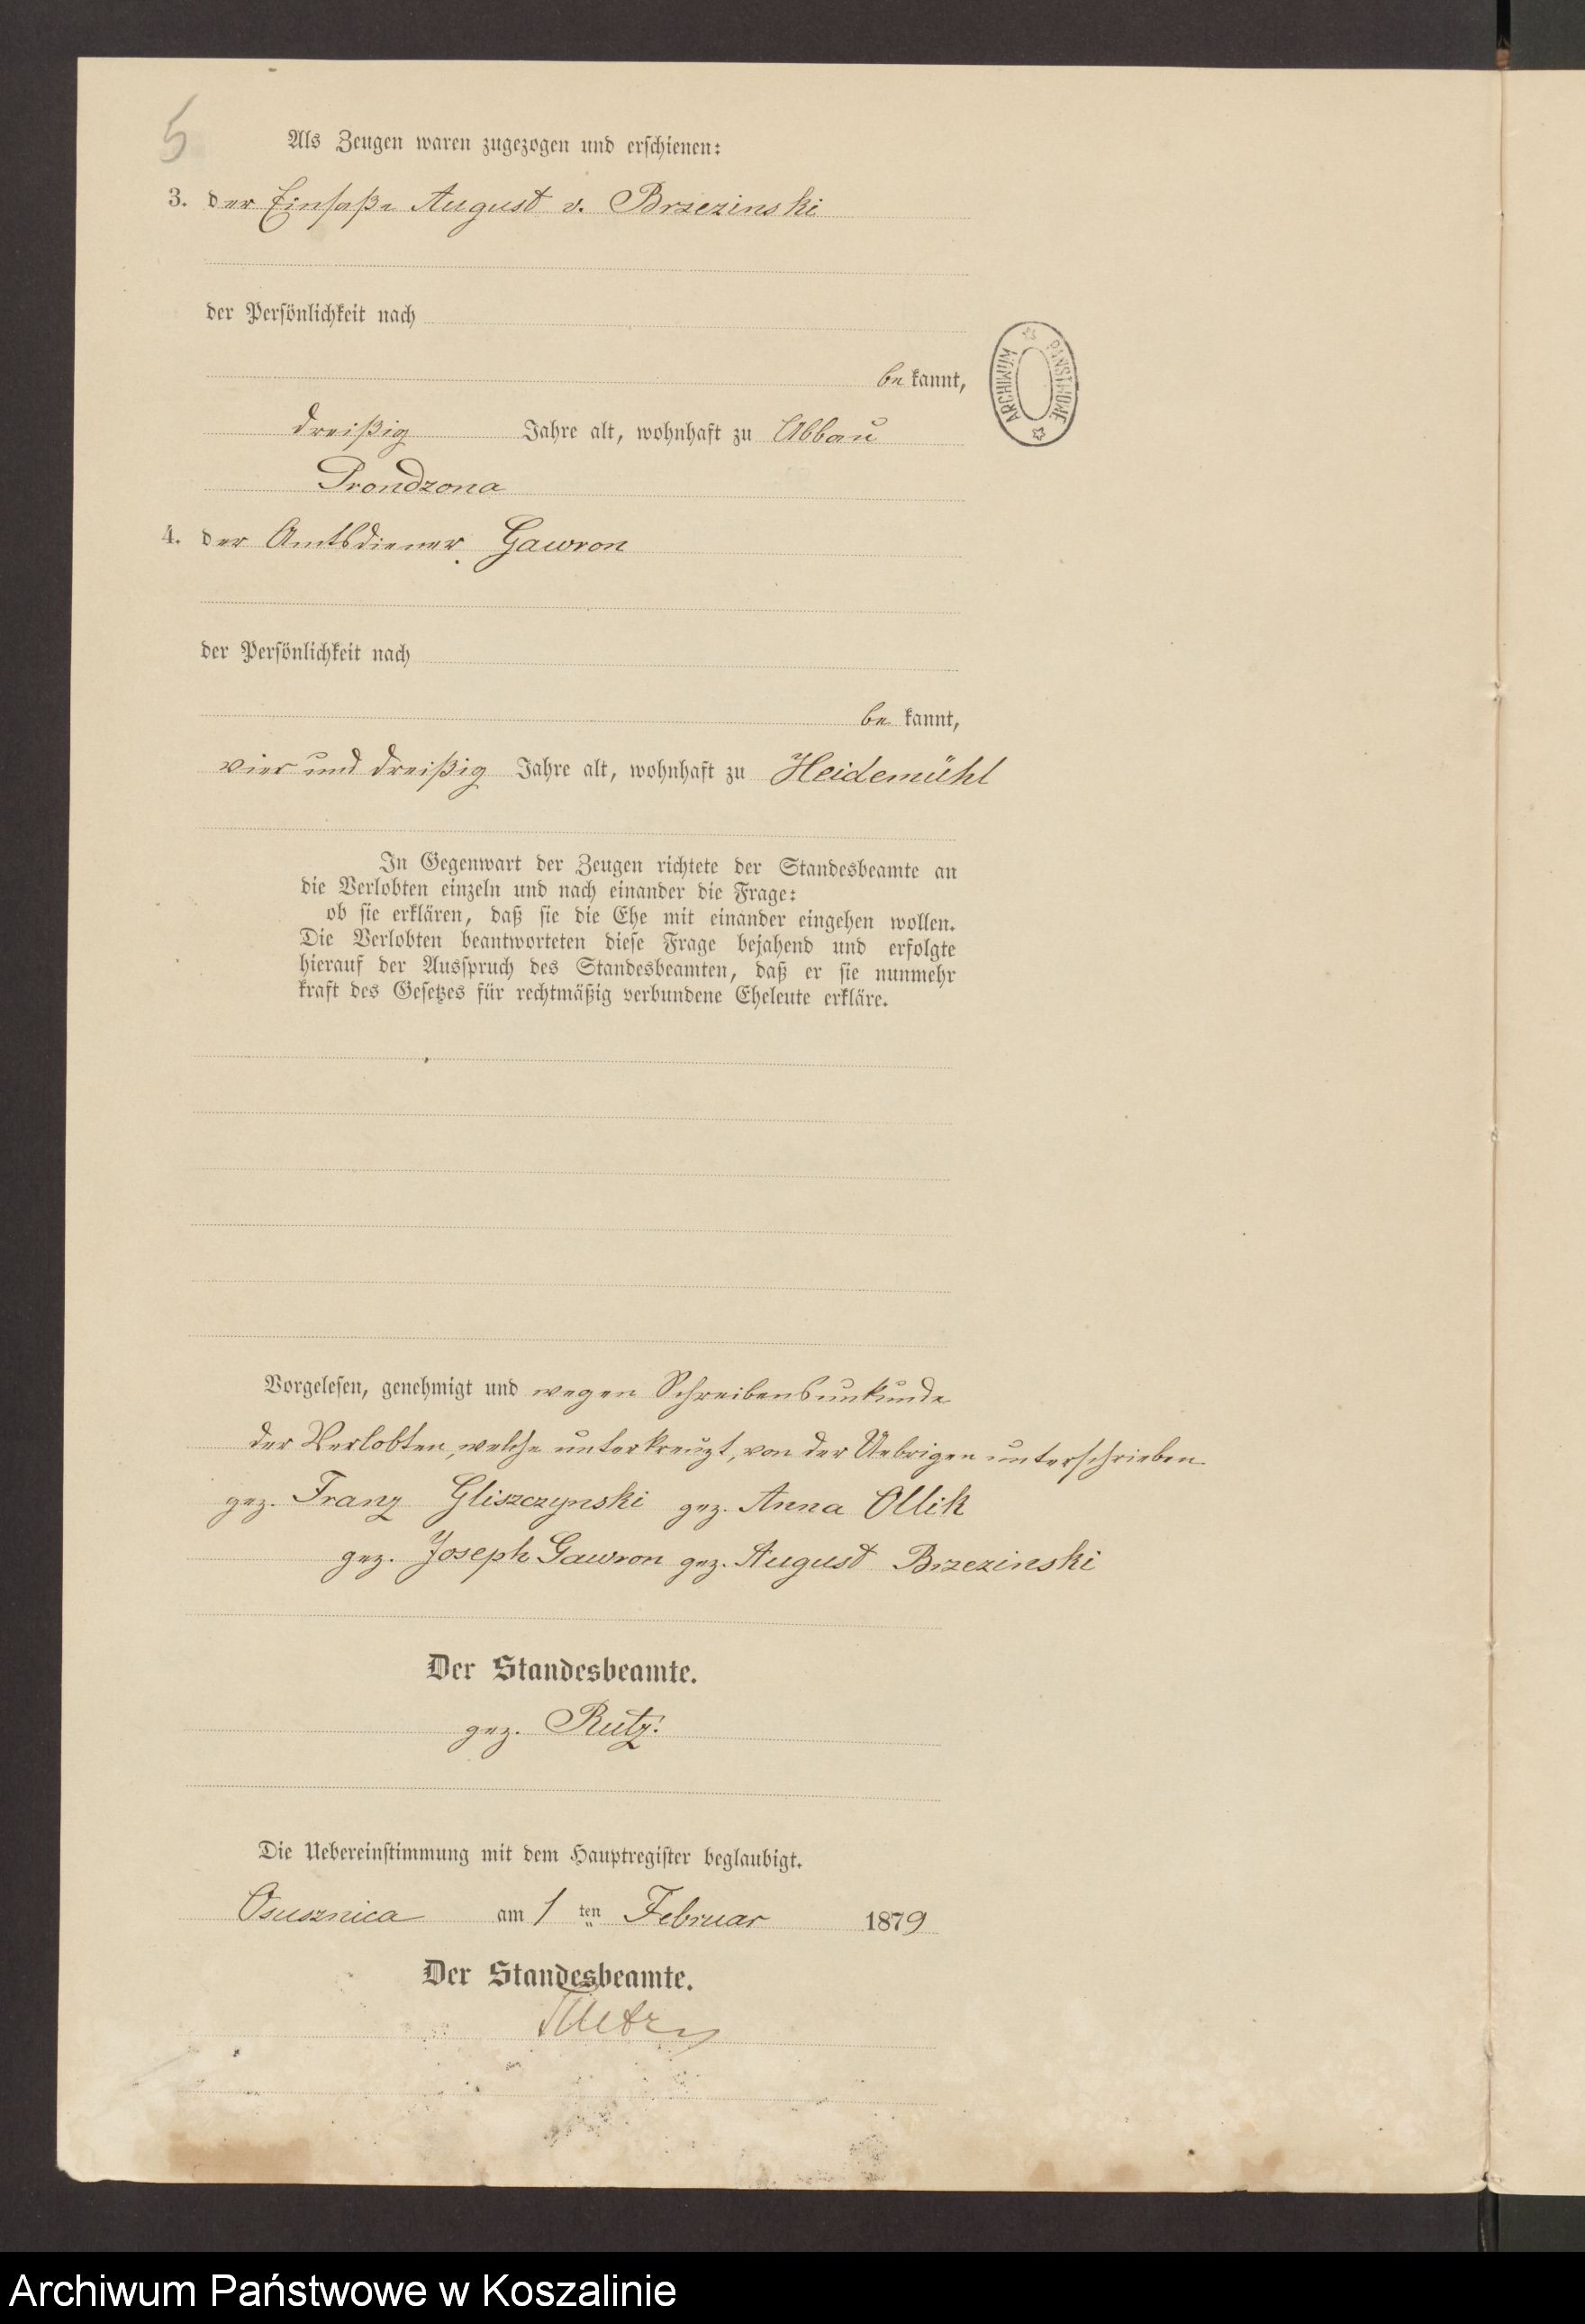 5
Als Zeugen waren zugezogen und erschienen:
3. der Einsaße August v. Brzezinski
der Persönlichkeit nach
be kannt,
dreißig Jahre alt, wohnhaft zu Abbau
Prondzona
4. der Amtsdiener Gawron
der Persönlichkeit nach
be kannt,
vier und dreißig Jahre alt, wohnhaft zu Heidemühl
In Gegenwart der Zeugen richtete der Standesbeamte an
die Verlobten einzeln und nach einander die Frage:
ob sie erklären, daß sie die Ehe mit einander eingehen wollen.
Die Verlobten beantworteten diese Frage bejahend und erfolgte
hierauf der Ausspruch des Standesbeamten, daß er sie nunmehr
kraft des Gesetzes für rechtmäßig verbundene Eheleute erkläre.
Vorgelesen, genehmigt und wegen Schreibensunkunde
der Verlobten, welche unterkreuzt, von der Uebrigen unterschrieben
gez. Franz Gliszczynski gez. Anna Ollik
gez. Joseph Gawron gez. August Brzezinski
Der Standesbeamte.
gez. Rutz.
Die Uebereinstimmung mit dem Hauptregister beglaubigt.
Osusznica am 1 ten Februar 1879
Der Standesbeamte.
ARCHIWUM PAŃSTWOWE
Archiwum Państwowe w Koszalinie